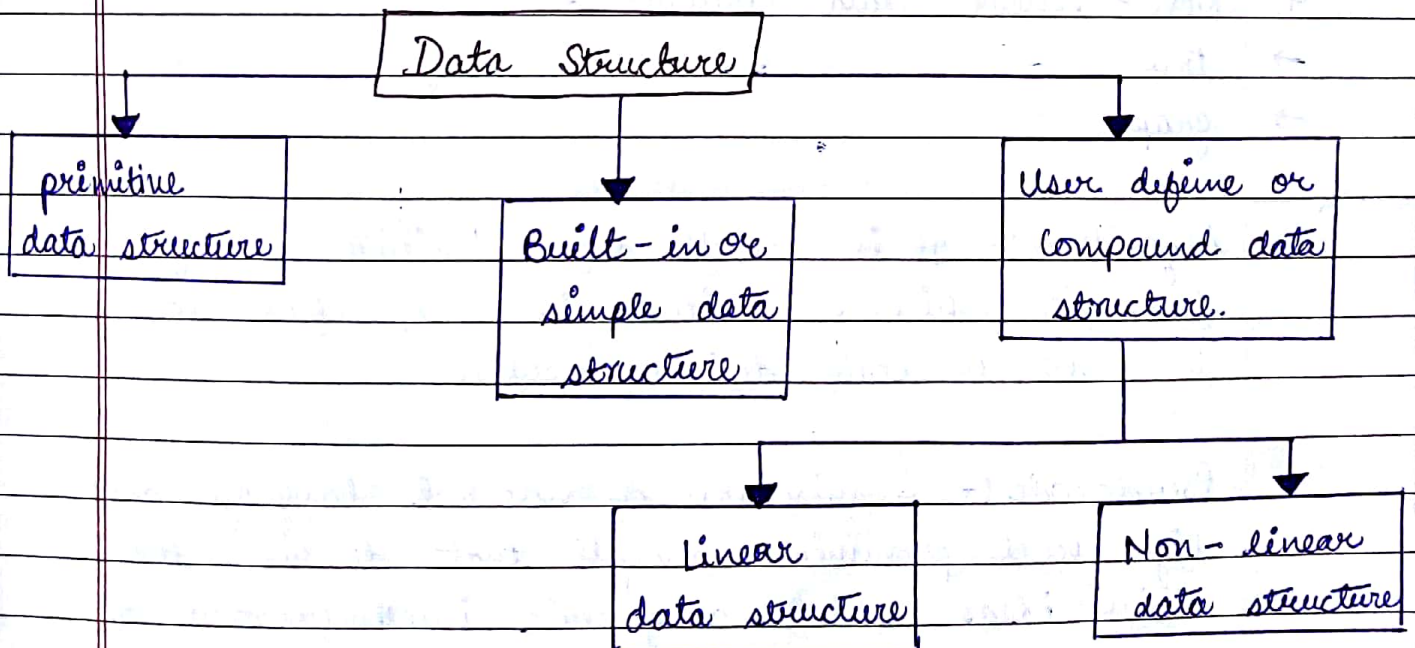 Data Structure
primitive
data structure
Built-in or
simple data
structure
User define or
Compound data
structure.
Linear
data structure
Non-linear
data structure